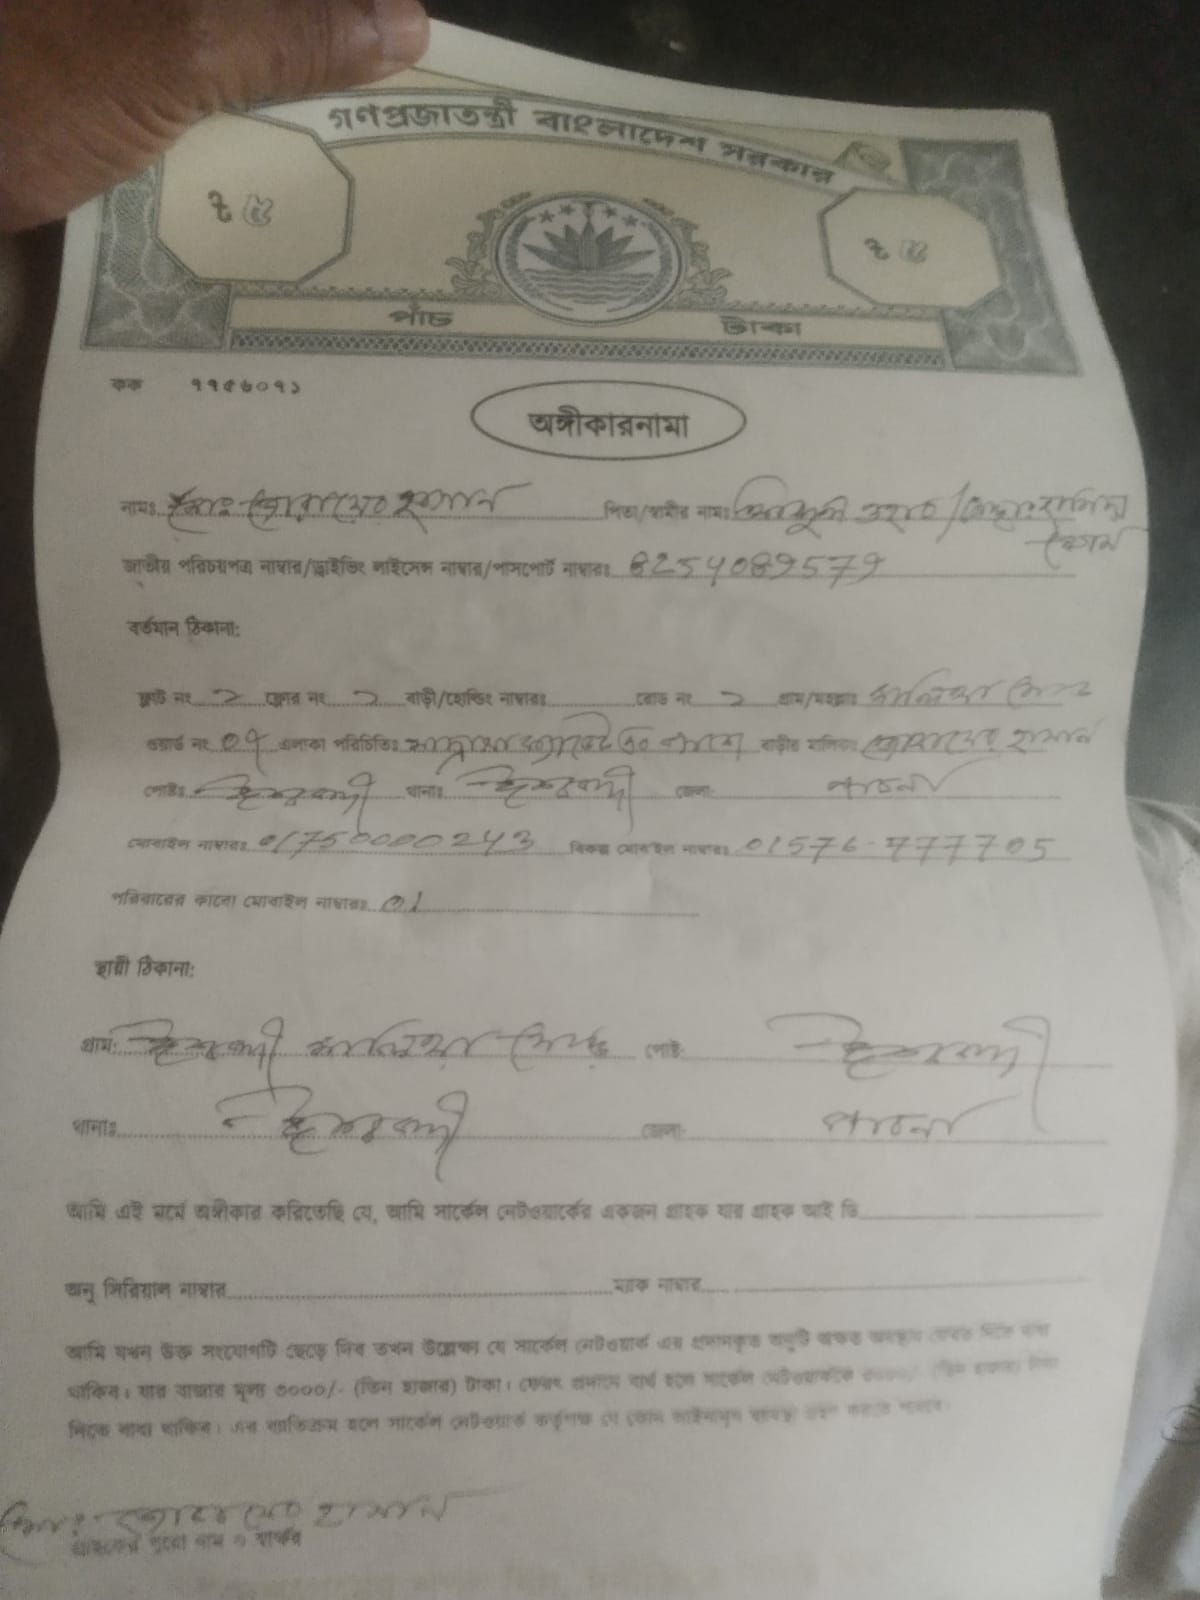 গণপ্রজাতন্ত্রী বাংলাদেশ সরকার
৳ ৫ ৳ ৫
পাঁচ টাকা
কক ৭৭৫৬০৭১
অঙ্গীকারনামা
নামঃ মোঃ জোবায়ের হাসান পিতা/স্বামীর নামঃ
জাতীয় পরিচয়পত্র নাম্বার/ড্রাইভিং লাইসেন্স নাম্বার/পাসপোর্ট নাম্বারঃ 8254089579
বর্তমান ঠিকানা:
ফ্লাট নং ২ ফ্লোর নং ২ বাড়ী/হোল্ডিং নাম্বারঃ রোড নং ২ গ্রাম/মহল্লাঃ
ওয়ার্ড নং 07 এলাকা পরিচিতিঃ বাড়ীর মালিকঃ জোবায়ের হাসান
পোষ্টঃ ঈশ্বরদী থানাঃ ঈশ্বরদী জেলা: পাবনা
মোবাইল নাম্বারঃ 01750000243 বিকল্প মোবাইল নাম্বারঃ 01576-777705
পরিবারের কারো মোবাইল নাম্বারঃ 01
স্থায়ী ঠিকানা:
গ্রাম: ঈশ্বরদী পোষ্ট: ঈশ্বরদী
থানাঃ ঈশ্বরদী জেলা: পাবনা
আমি এই মর্মে অঙ্গীকার করিতেছি যে, আমি সার্কেল নেটওয়ার্কের একজন গ্রাহক যার গ্রাহক আই ডি
অনু সিরিয়াল নাম্বার ম্যাক নাম্বার
আমি যখন উক্ত সংযোগটি ছেড়ে দিব তখন উল্লেক্ষ্য যে সার্কেল নেটওয়ার্ক এর প্রদানকৃত অনুটি অক্ষত অবস্থায় ফেরত দিতে বাধ্য
থাকিব। যার বাজার মূল্য ৩০০০/- (তিন হাজার) টাকা। ফেরৎ প্রদানে ব্যর্থ হলে সার্কেল নেটওয়ার্ককে ৩০০০/- (তিন হাজার) টাকা
দিতে বাধ্য থাকিব। এর ব্যতিক্রম হলে সার্কেল নেটওয়ার্ক কর্তৃপক্ষ যে কোন আইনানুগ ব্যবস্থা গ্রহণ করতে পারবে।
মোঃ জোবায়ের হাসান
গ্রাহকের পুরো নাম ও স্বাক্ষর